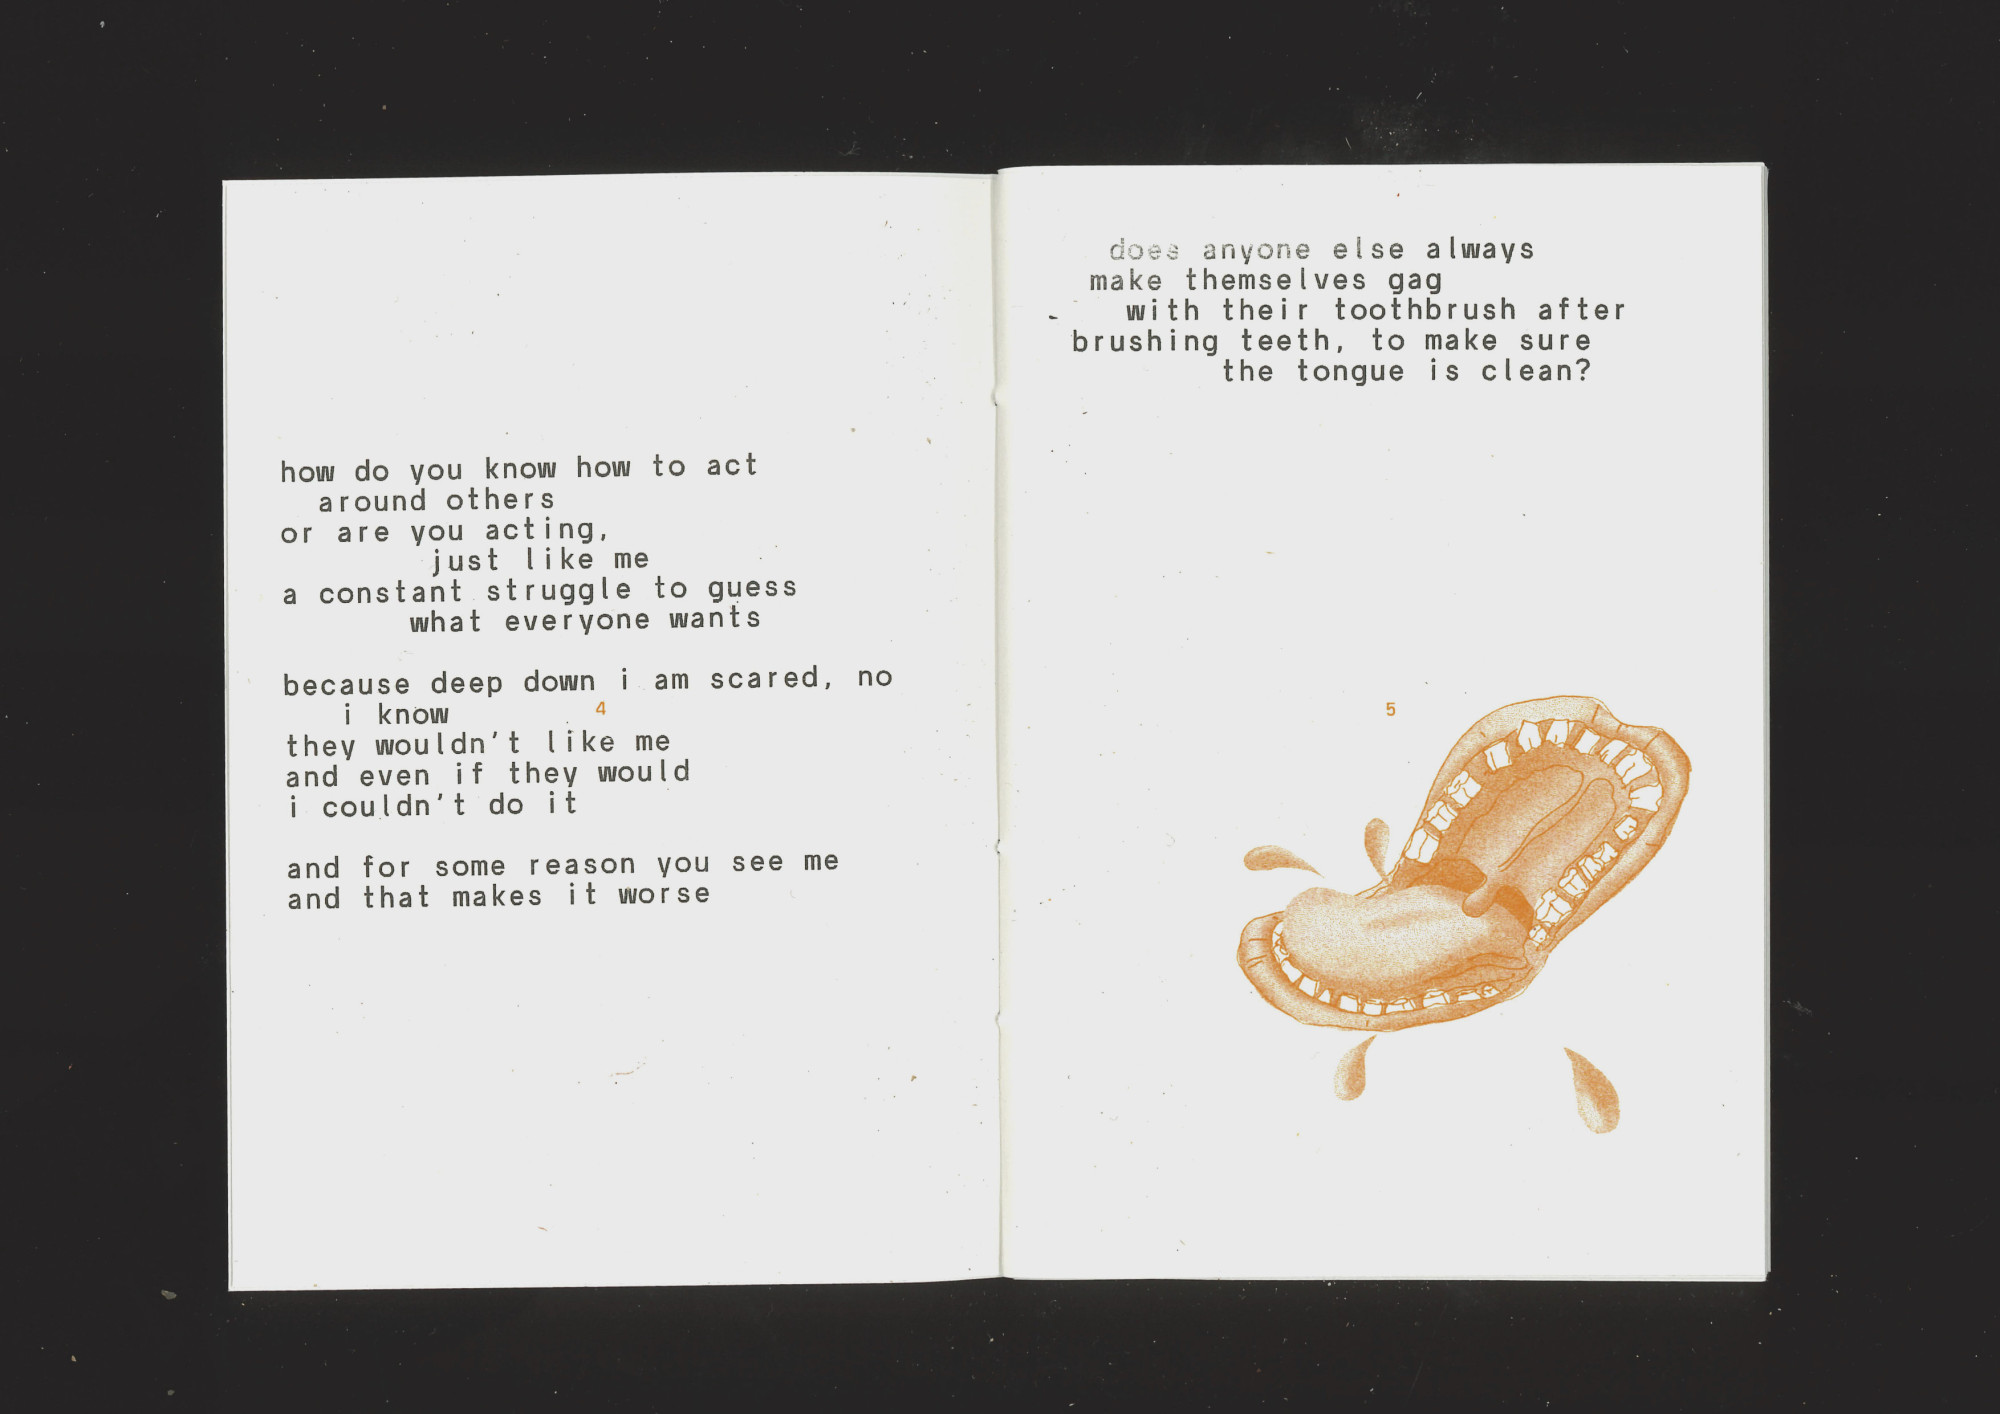 how do you know how to act
around others
or are you acting,
just like me
a constant struggle to guess
what everyone wants
because deep down i am scared, no
i know
4
they wouldn't like me
and even if they would
i couldn't do it
and for some reason you see me
and that makes it worse
does anyone else always
make themselves gag
with their toothbrush after
brushing teeth, to make sure
the tongue is clean?
5